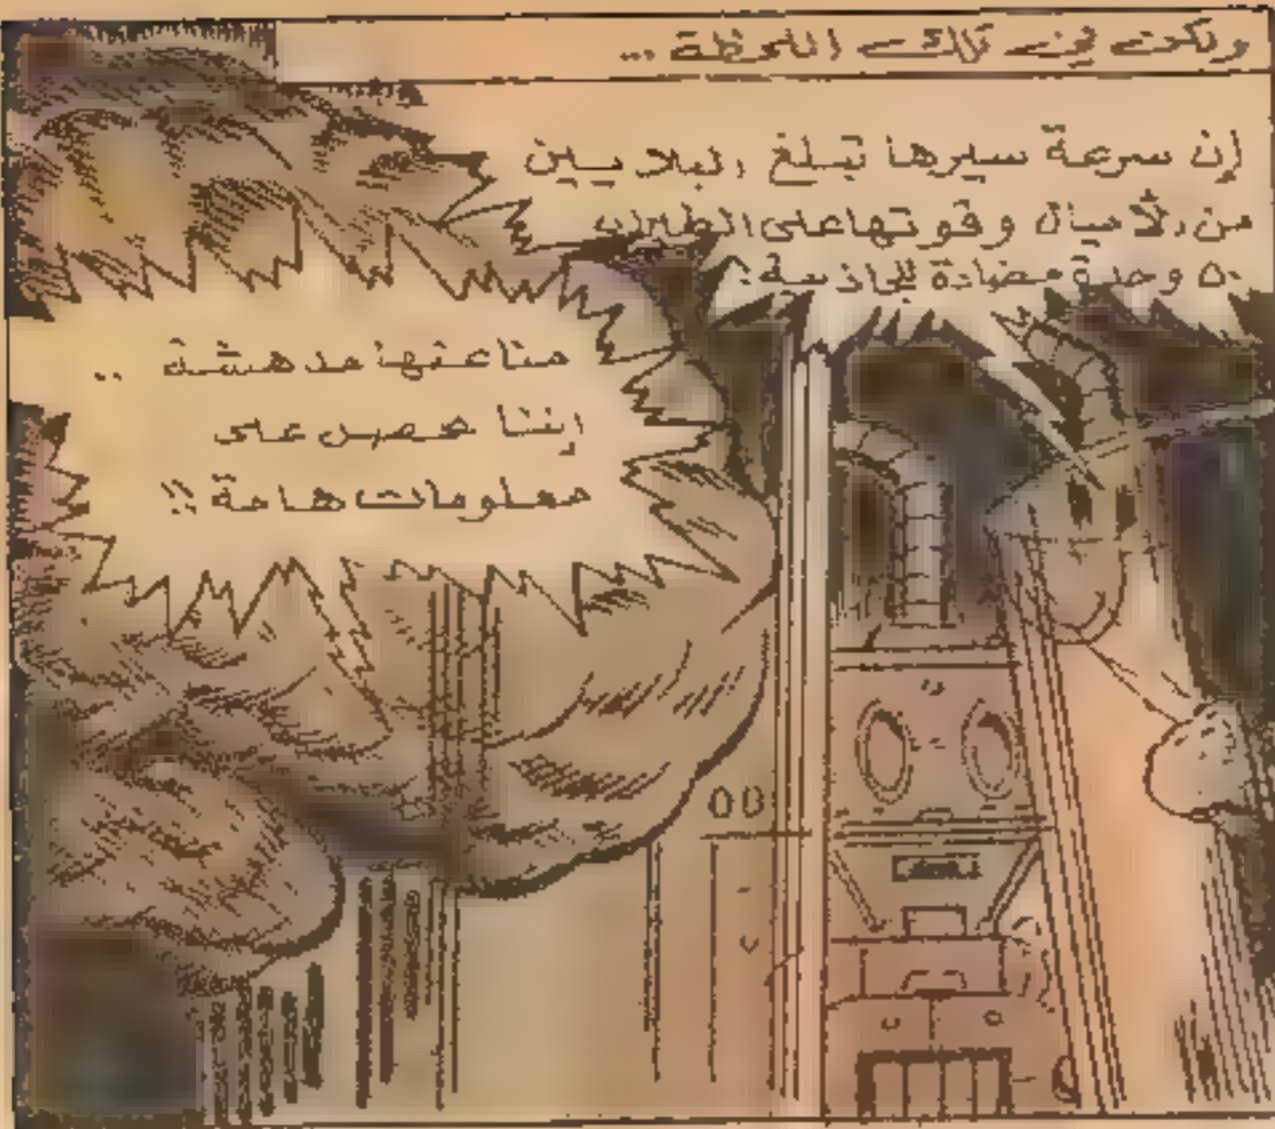 ولكن في تلك اللحظة ...
إن سرعة سيرها تبلغ البلايين
من الأميال وقوتها على الطيران
٥٠ وحدة مضادة للجاذبية :
مناعتها مدهشة ..
إننا نحصل على
معلومات هامة !!